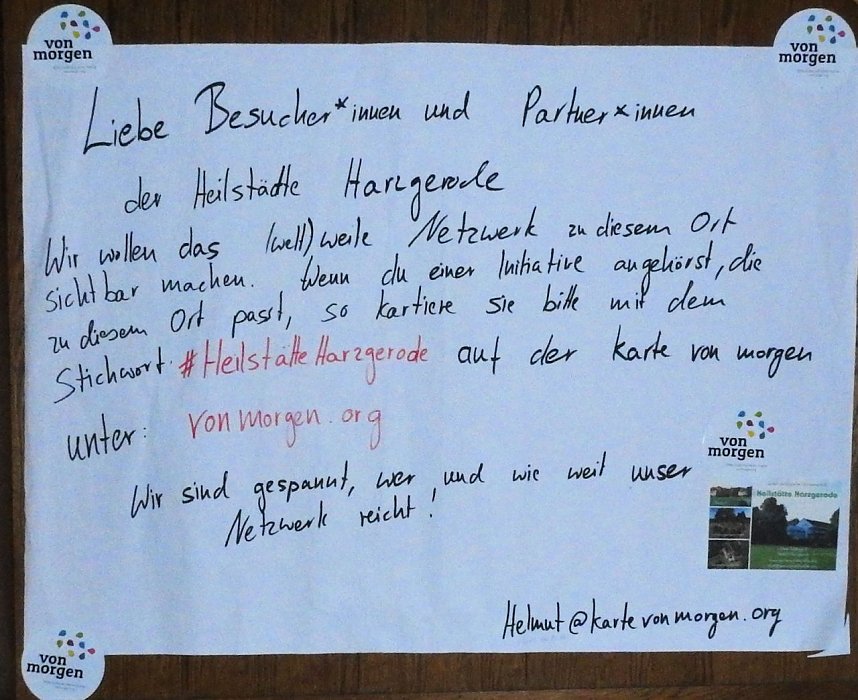 von
morgen
von
morgen
Liebe Besucher*innen und Partner*innen
der Heilstädte Harzgerode
Wir wollen das (welt)weite Netzwerk zu diesem Ort
sichtbar machen. Wenn du einer Initiative angehörst, die
zu diesem Ort passt, so kartiere sie bitte mit dem
Stichwort: #HeilstätteHarzgerode auf der Karte von morgen
unter: vonmorgen.org
Wir sind gespannt, wer und wie weit unser
Netzwerk reicht!
von
morgen
Heilstätte Harzgerode
Helmut@kartevonmorgen.org
von
morgen